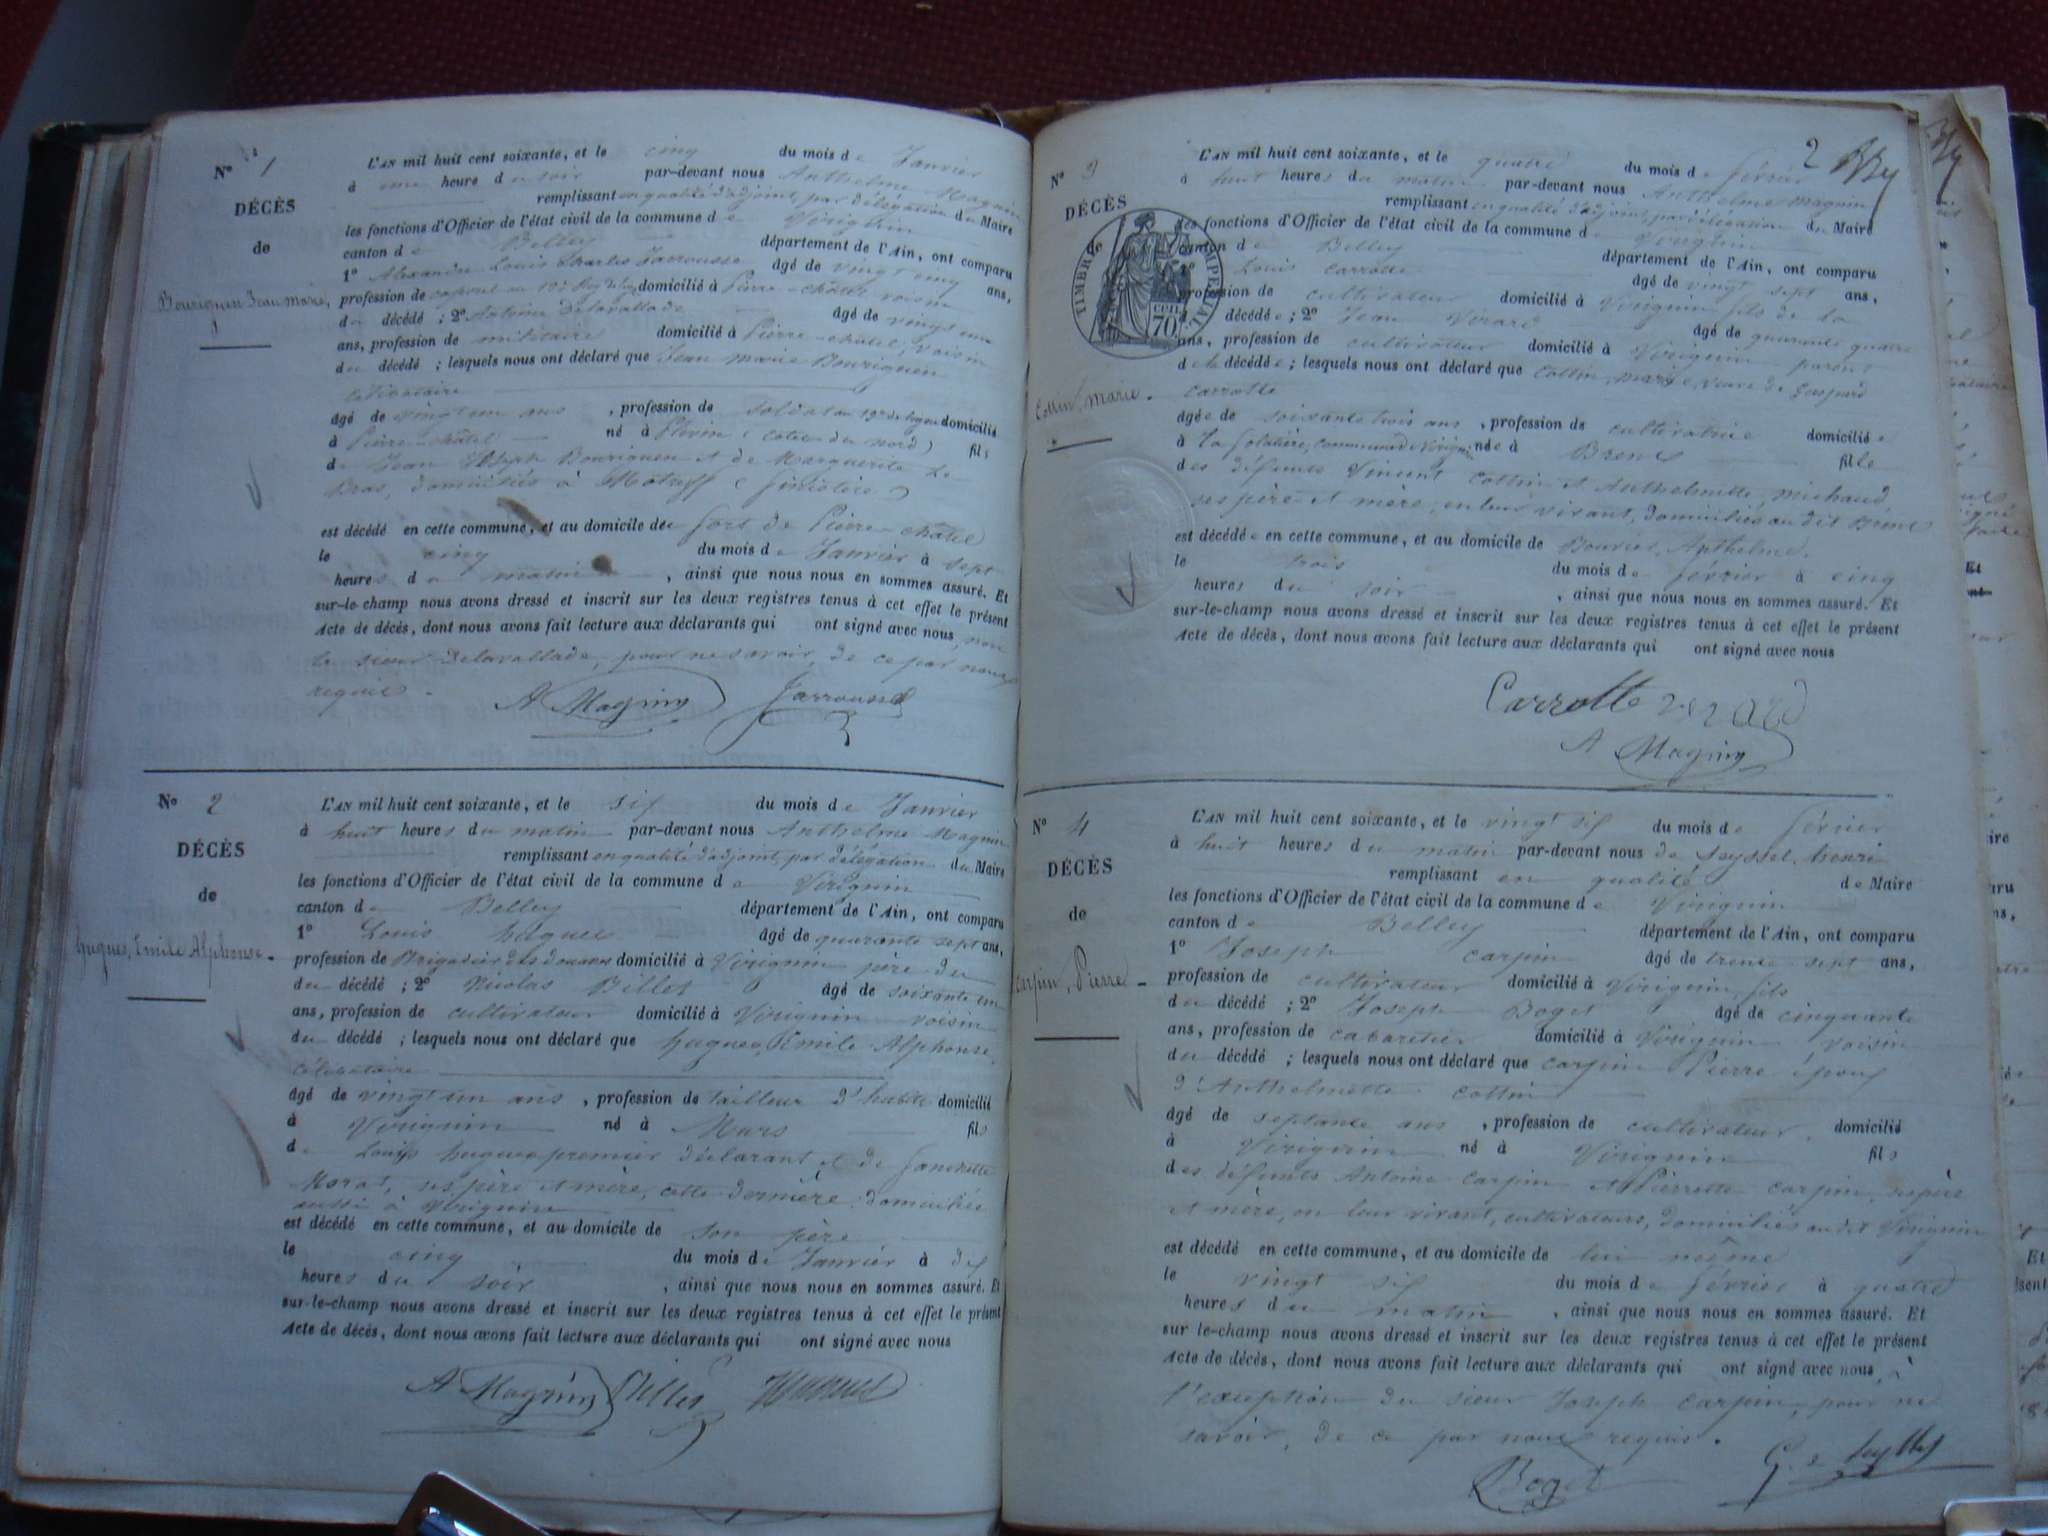 N° 1
DÉCÈS
de
Bouriquen Jean marie,
L'AN mil huit cent soixante, et le cinq du mois de Janvier
à une heure du soir par-devant nous Anthelme Magnin
remplissant en qualité d'adjoint, par délégation du Maire
les fonctions d'Officier de l'état civil de la commune de Virignin
canton de Belley département de l'Ain, ont comparu
1° Alexandre Louis Charles Jarrousse âgé de vingt cinq ans,
profession de caporal au domicilié à Pierre-châtel voisin
du décédé ; 2° Antoine Delavallade âgé de vingt un
ans, profession de militaire domicilié à Pierre-châtel, voisin
du décédé ; lesquels nous ont déclaré que Jean marie Bouriquen
célibataire
âgé de vingt un ans , profession de soldat au domicilié
à Pierre-châtel né à Plévin (côtes du nord) fils
de Jean Joseph Bouriquen et de Marguerite Le
Bras, domiciliés à Motreff (finistère)
est décédé en cette commune, et au domicile de fort de Pierre châtel
le cinq du mois de Janvier à sept
heures du matin , ainsi que nous nous en sommes assuré. Et
sur-le-champ nous avons dressé et inscrit sur les deux registres tenus à cet effet le présent
Acte de décès, dont nous avons fait lecture aux déclarants qui ont signé avec nous, non
le sieur Delavallade, pour ne savoir, de ce par nous
requis.
A Magnin Jarrousse
N° 2
DÉCÈS
de
hugues, Emile Alphonse.
L'AN mil huit cent soixante, et le six du mois de Janvier
à huit heures du matin par-devant nous Anthelme Magnin
remplissant en qualité d'adjoint, par délégation du Maire
les fonctions d'Officier de l'état civil de la commune de Virignin
canton de Belley département de l'Ain, ont comparu
1° Louis hugues âgé de quarante sept ans,
profession de Brigadier des douanes domicilié à Virignin père du
du décédé ; 2° Nicolas Billet âgé de soixante un
ans, profession de cultivateur domicilié à Virignin voisin
du décédé ; lesquels nous ont déclaré que hugues, Emile Alphonse,
célibataire
âgé de vingt un ans , profession de tailleur d'habits domicilié
à Virignin né à Murs fils
de Louis hugues premier déclarant et de fanchette
Morat, ses père et mère, cette dernière domiciliée
aussi à Virignin
est décédé en cette commune, et au domicile de son père
le cinq du mois de Janvier à dix
heures du soir , ainsi que nous nous en sommes assuré. Et
sur-le-champ nous avons dressé et inscrit sur les deux registres tenus à cet effet le présent
Acte de décès, dont nous avons fait lecture aux déclarants qui ont signé avec nous
A Magnin Billet
2
N° 3
DÉCÈS
de
TIMBRE IMPERIAL
CEN. 70
Cottin, marie.
L'AN mil huit cent soixante, et le quatre du mois de février
à huit heures du matin par-devant nous Anthelme Magnin
remplissant en qualité d'adjoint, par délégation du Maire
les fonctions d'Officier de l'état civil de la commune de Virignin
canton de Belley département de l'Ain, ont comparu
1° Louis Carrotte âgé de vingt sept ans,
profession de cultivateur domicilié à Virignin fils de la
décédée ; 2° Jean Vérard âgé de quarante quatre
ans, profession de cultivateur domicilié à Virignin parent
de la décédée ; lesquels nous ont déclaré que Cottin, marie, veuve de Gaspard
Carrotte
âgée de soixante trois ans , profession de cultivatrice domiciliée
à commune de Virignin née à Brens fille
des défunts Vincent Cottin et Anthelmette michaud,
ses père et mère, en leur vivant, domiciliés au dit Brens
est décédée en cette commune, et au domicile de Bouvier, Anthelme.
le trois du mois de février à cinq
heures du soir , ainsi que nous nous en sommes assuré. Et
sur-le-champ nous avons dressé et inscrit sur les deux registres tenus à cet effet le présent
Acte de décès, dont nous avons fait lecture aux déclarants qui ont signé avec nous
Carrotte verard
A Magnin
N° 4
DÉCÈS
de
Carpin, Pierre
L'AN mil huit cent soixante, et le vingt six du mois de février
à huit heures du matin par-devant nous de Seyssel, henri
remplissant en qualité de Maire
les fonctions d'Officier de l'état civil de la commune de Virignin
canton de Belley département de l'Ain, ont comparu
1° Joseph carpin âgé de trente sept ans,
profession de cultivateur domicilié à Virignin, fils
du décédé ; 2° Joseph Boget âgé de cinquante
ans, profession de cabaretier domicilié à Virignin voisin
du décédé ; lesquels nous ont déclaré que carpin Pierre époux
d'Anthelmette cottin
âgé de septante ans , profession de cultivateur, domicilié
à Virignin né à Virignin fils
des défunts Antoine carpin et Pierrette carpin, ses père
et mère, en leur vivant, cultivateurs, domiciliés au dit Virignin
est décédé en cette commune, et au domicile de lui même
le vingt six du mois de février à quatre
heures du matin , ainsi que nous nous en sommes assuré. Et
sur le-champ nous avons dressé et inscrit sur les deux registres tenus à cet effet le présent
Acte de décès, dont nous avons fait lecture aux déclarants qui ont signé avec nous, à
l'exception du sieur Joseph carpin, pour ne
savoir, de ce par nous requis.
Boget